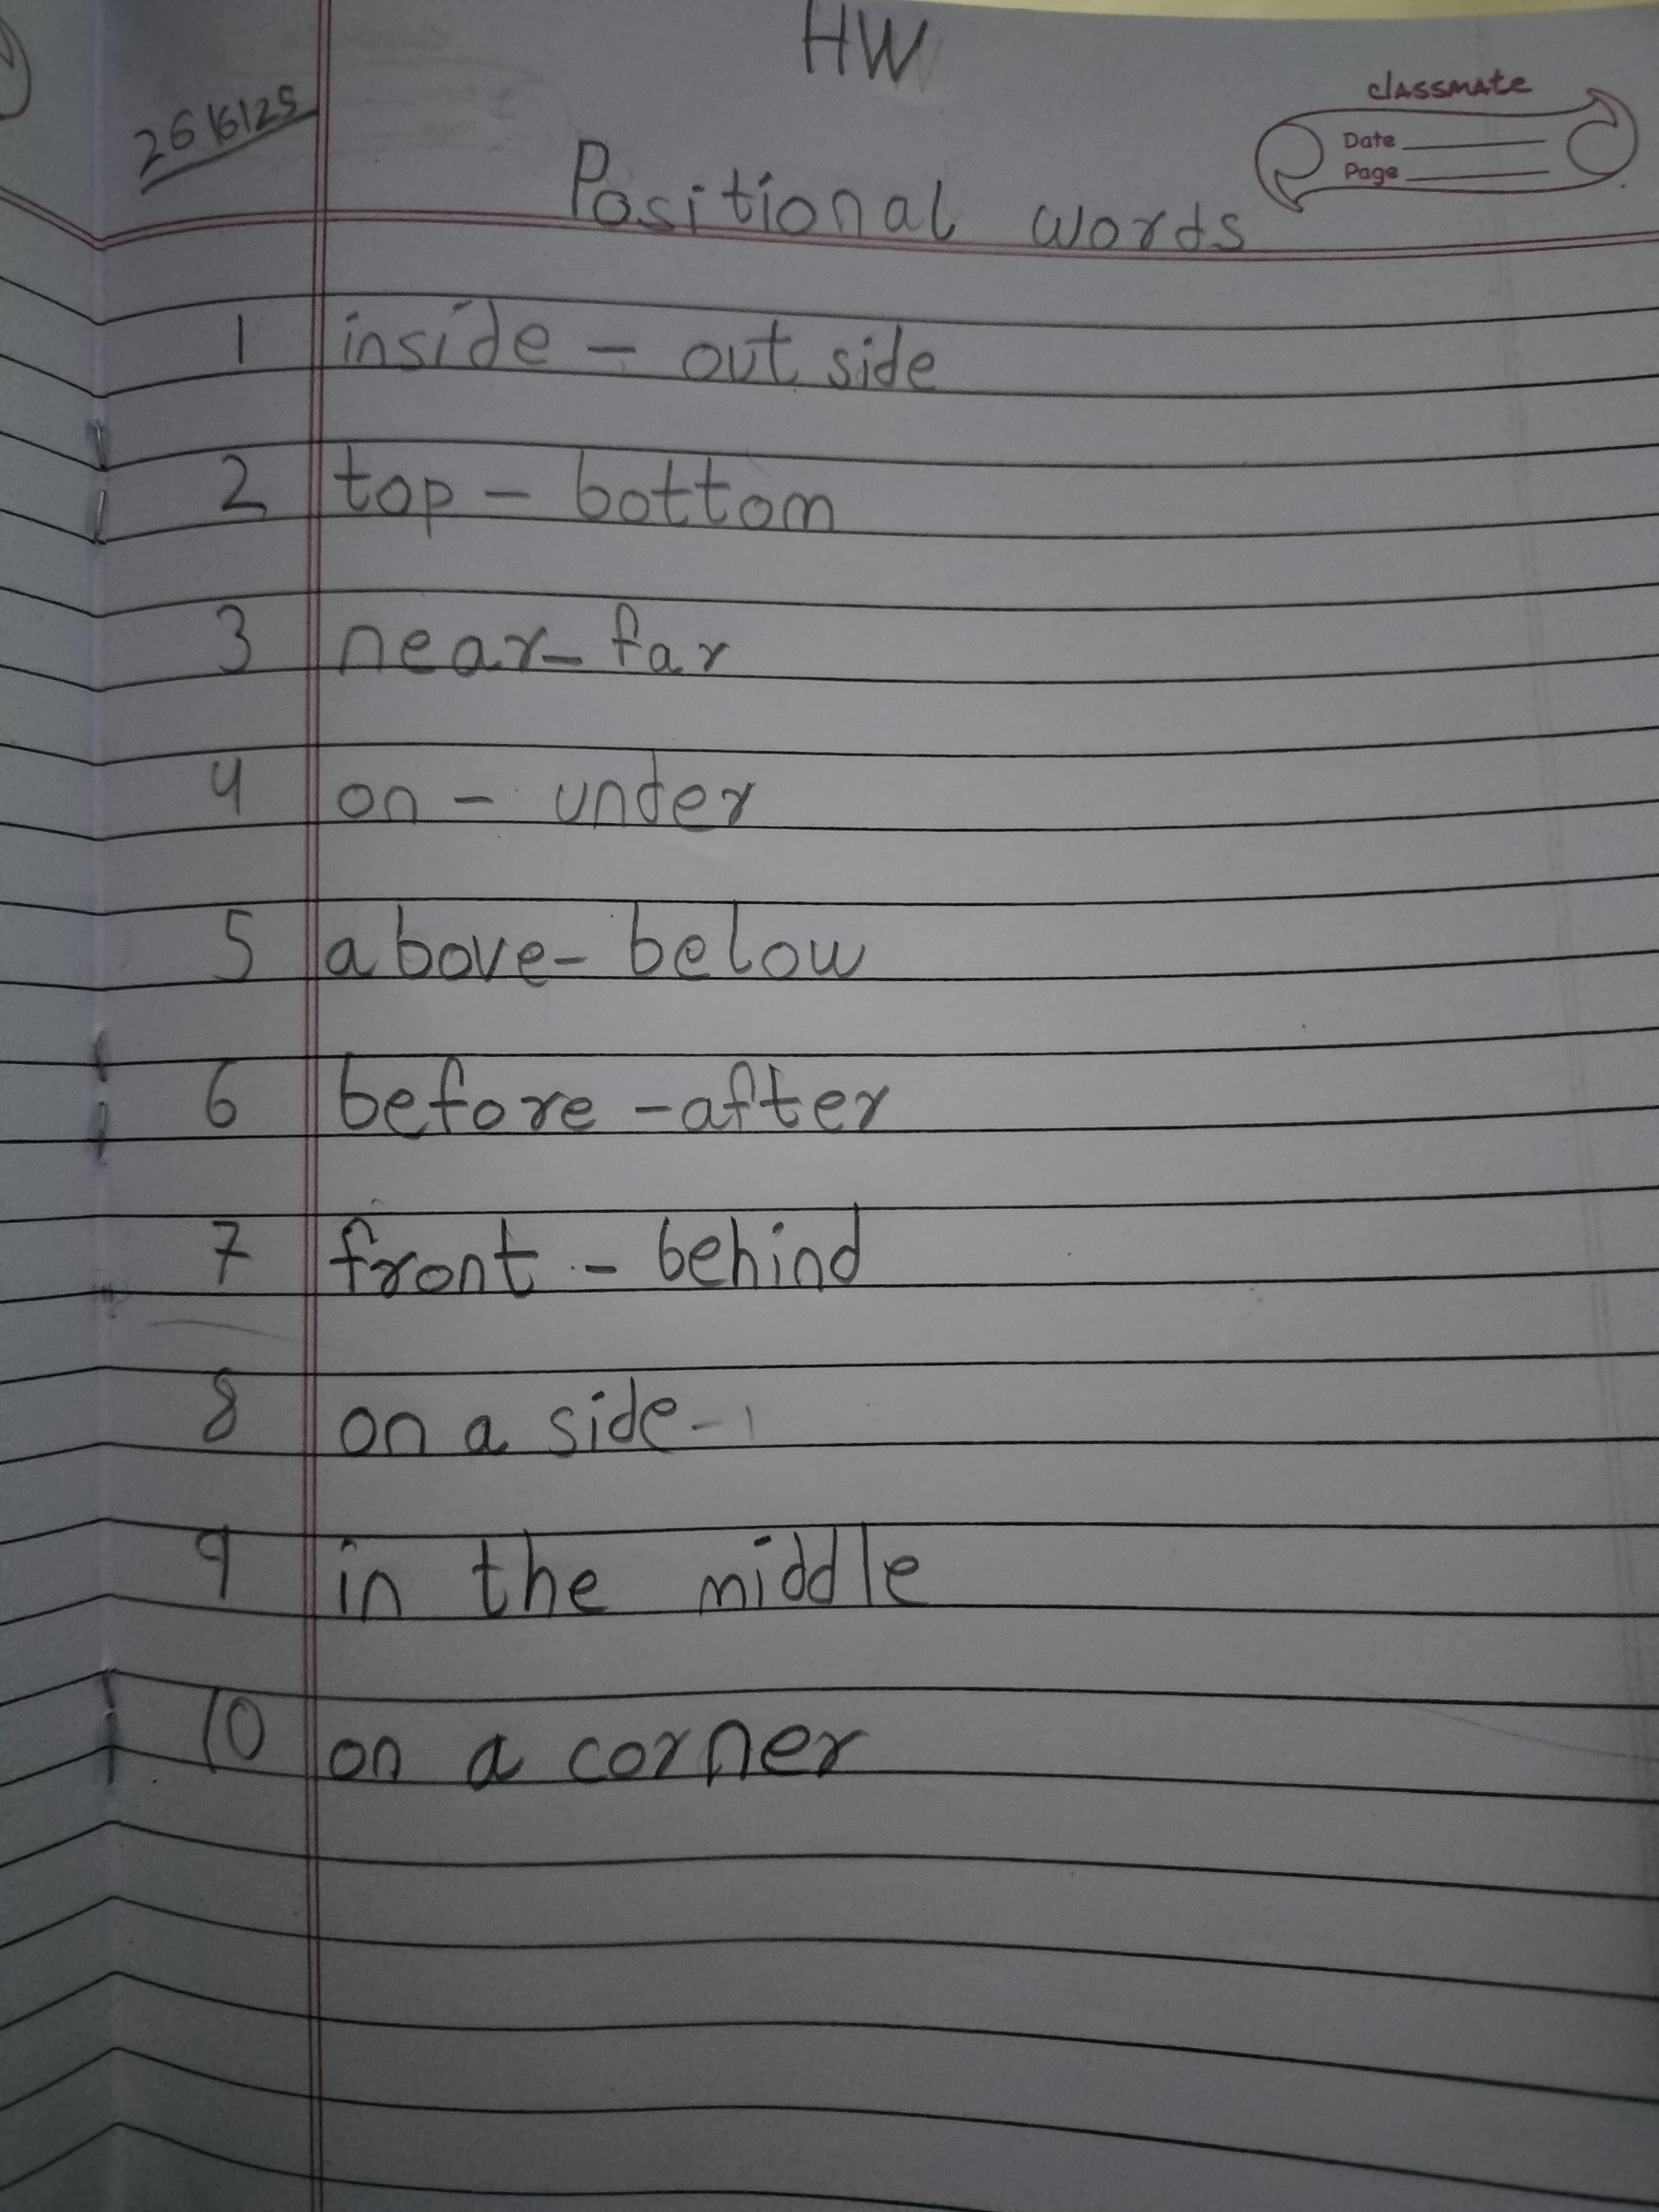 HW
classmate
26/6/25
Date
Page
Positional words
1 inside - out side
2 top - bottom
3 near - far
4 on - under
5 above - below
6 before - after
7 front - behind
8 on a side -
9 in the middle
10 on a corner